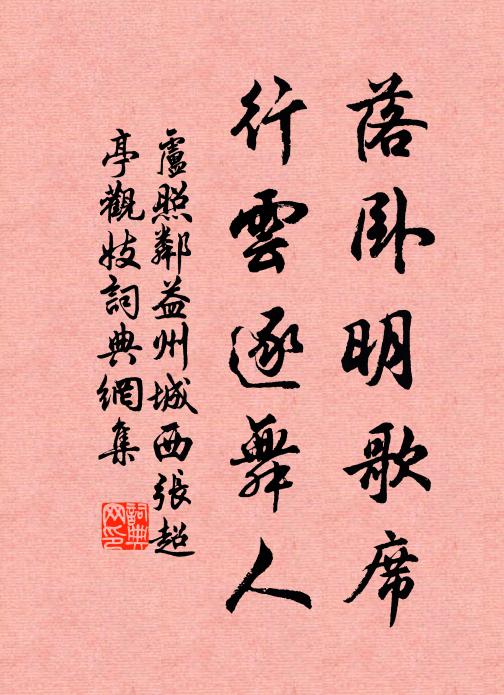 落卧明歌席
行雲逐舞人
盧照鄰益州城西張超
亭觀妓詞典網集
詞典网印